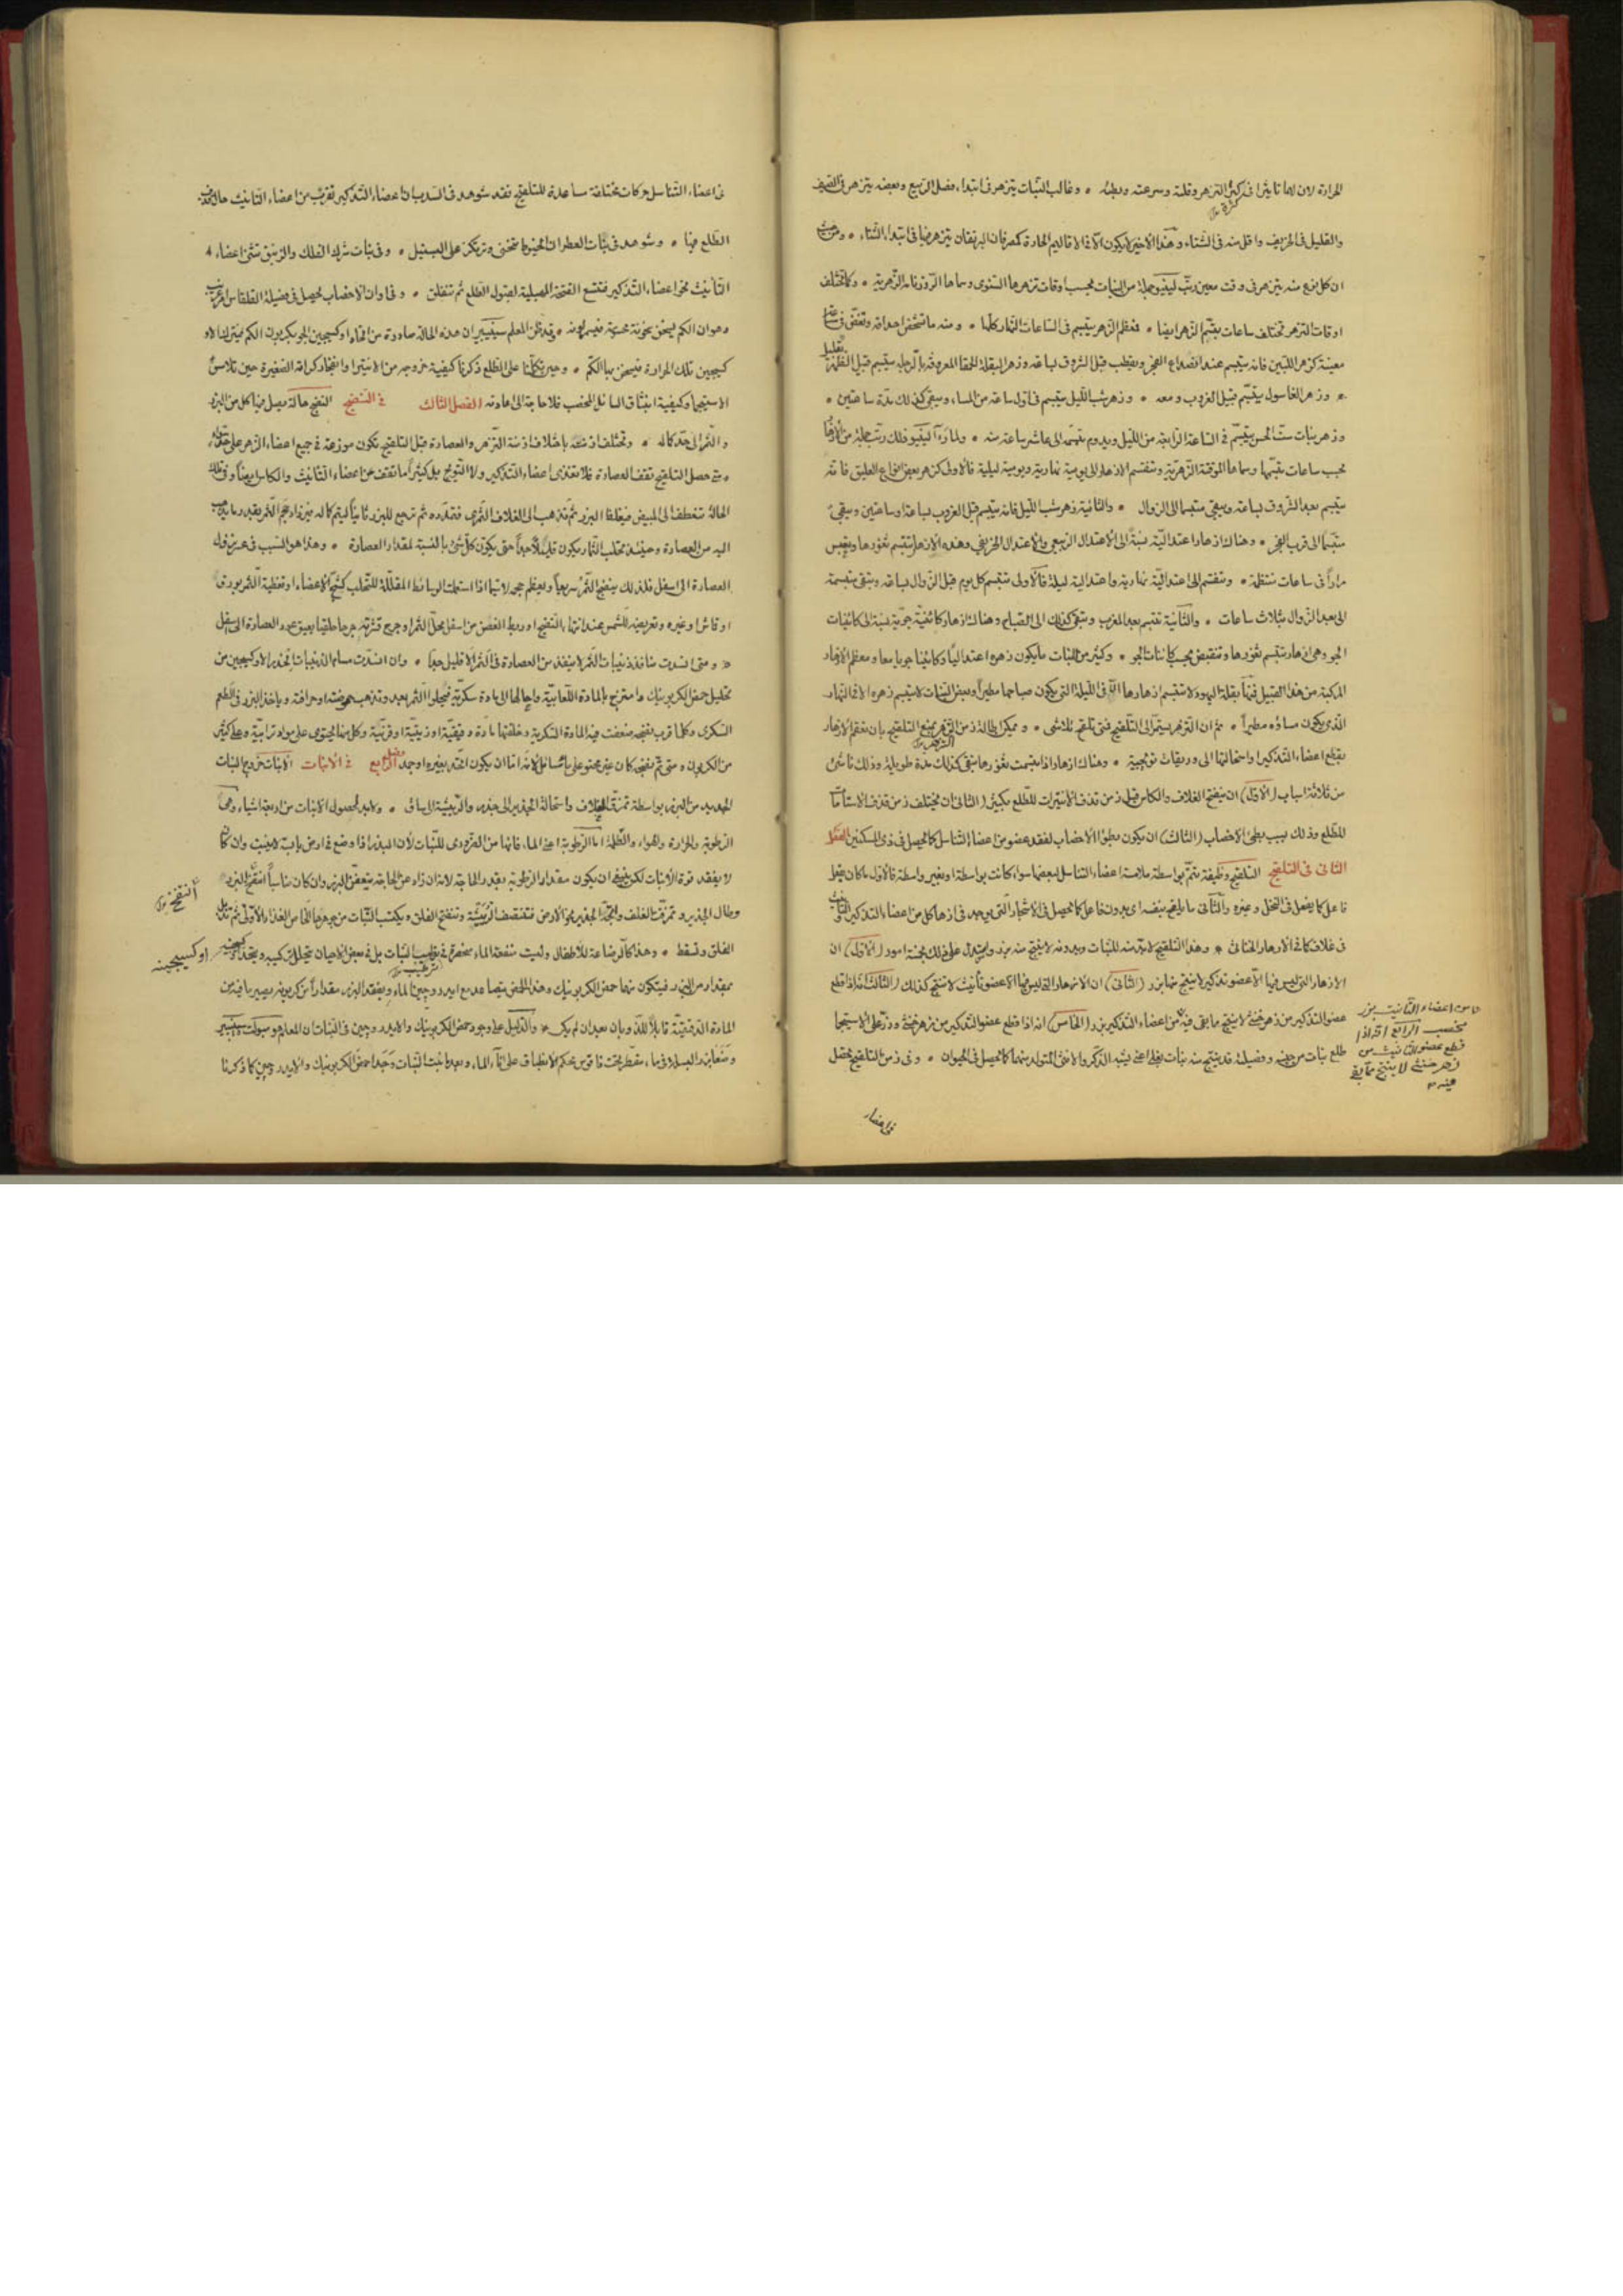 الحرارة لان لها تاثيرا فى كثرة التزهر وقلته وسرعته وبطئه • وغالب النبات يتزهر فى ابتداء فصل الربيع وبعضه يتزهر فى الصيف
والقليل فى الخريف واقل منه فى الشتاء وهذا الاخير لا يكون الا فى الاقاليم الحارة كمصر فان البرتقان يتزهر فيها فى ابتداء الشتاء • ومن حيث
ان كل نوع منه يتزهر فى وقت معين رتب لينيو جملة من النبات بحسب اوقات تزهرها السنوى وسماها الروزنامة الزهرية • وكما تختلف
اوقات التزهر تختلف ساعات تبسم الزهر ايضا • فمعظم الزهر يتبسم فى الساعات النهار كلها • ومنه ما
معينة كزهر اللبين فانه يتبسم عند انصداع الفجر ويقطب قبل الشروق بساعة وزهر البقلة الحمقا المعروفة بالرجلة يتبسم قبيل الظهر بقليل
• وزهر الغاسول يتبسم قبيل الغروب ومعه • وزهر شب الليل يتبسم فى اول ساعة من المساء ويبقى كذلك مدة ساعتين •
وزهر نبات ست الحسن يتبسم فى الساعة الرابعة من الليل ويدوم تبسمه الى عاشر ساعة منه • ولما رآ لينيو ذلك رتب جملة من الازهار
بحسب ساعات تبسمها وسماها الموقتة الزهرية وتنقسم الازهار الى يومية نهارية ويومية ليلية فالاولى كزهر بعض انواع العليق فانه
يتبسم بعد الشروق بساعة ويبقى متبسما الى الزوال • والثانية زهر شب الليل فانه يتبسم قبل الغروب بساعة او ساعتين ويبقى
متبسما الى قرب الفجر • وهناك ازهار اعتدالية نسبة الى الاعتدال الربيعى والاعتدال الخريفى وهذه الازهار تبسم ثغورها ويعبس
مرارا فى ساعات منتظمة • وتنقسم الى اعتدالية نهارية واعتدالية ليلية فالاولى تتبسم كل يوم قبل الزوال بساعة وتبقى متبسمة
الى بعد الزوال بثلاث ساعات • والثانية تتبسم بعد المغرب وتبقى كذلك الى الصباح وهناك ازهار كائنية جوية نسبة الى كائنات
الجو وهى ازهار تتبسم ثغورها وتنقبض بحسب كائنات الجو • وكثير من النبات ما يكون زهره اعتداليا وكائنيا جويا معا ومعظم الازهار
المركبة من هذا القبيل فبقلة اليهود لا تتبسم ازهارها الا فى الليلة التى يكون صباحها مطيرا وبعض النبات لا يتبسم زهره الا فى النهار
الذى يكون مساؤه مطيرا • ثم ان التزهر يستمر الى التلقيح فمتى تلقح تلاشى • ويمكن اطالة زمن التزهر بمنع التلقيح بان تعقم الازهار
بقطع اعضاء التذكير او استحالتها الى وريقات تويجية • وهناك ازهار اذا تبسمت ثغورها تبقى كذلك مدة طويلة وذلك ناشئ
من ثلاثة اسباب (الاول) ان ينفتح الغلاف والكاس قبل زمن قذف الانتيرات للطلع بكثير (الثانى) ان يختلف زمن قذف
للطلع وذلك بسبب بطئ الاخصاب (الثالث) ان يكون بطؤ الاخصاب لفقد عضو من اعضاء التناسل كما يحصل فى ذى المسكنين الفصل
الثانى فى التلقيح التلقيح وظيفة تتم بواسطة ملامسة اعضاء التناسل لبعضها سواء كانت بواسطة او بغير واسطة فالاول ما كان بفعل
فاعل كما يفعل فى النخل وغيره والثانى ما يلقح بنفسه اى بدون فاعل كما يحصل فى الاشجار التى يوجد فى ازهارها كل من اعضاء التذكير والتانيث
فى غلاف كما فى الازهار الخناثى • وهذا التلقيح لابد منه للنبات وبدونه لا ينتج منه بزر ويستدل على ذلك بخمسة امور (الاول) ان
الازهار التى ليس فيها الا عضو تذكير لا ينتج منها بزر (الثانى) ان الازهار التى ليس فيها الا عضو تانيث لا تنتج كذلك (الثالث) انه اذا قطع
عضو التذكير من زهر خنثى لا ينتج ما بقى فيه من اعضاء التذكير بزر (الخامس) انه اذا قطع عضو التذكير من زهر خنثى وذر على الاستيجما
طلع نبات من جنسه وفصيلته قد ينتج منه نبات بغلى اعنى يشبه الذكر والانثى المتولد منهما كما يحصل فى الحيوان • وفى زمن التلقيح يحصل
اعضاء التانيث بزر
الرابع انه اذا
قطع عضو التانيث من
زهر خنثى لا ينتج ما بقى
فيه
فى اعضاء
فى اعضاء التناسل حركات مختلفة مساعدة للتلقيح فقد شوهد فى السدب ان اعضاء التذكير تقرب من اعضاء التانيث حال قذف
الطلع فيها • وشوهد فى نبات العطر ان الخيوط تنحنى وترتكز على البستيل • وفى نبات شرك الفلك والزنبق تنثنى اعضاء
التأنيث نحو اعضاء التذكير فتتسع الفتحة المهبلية لقبول الطلع ثم تنغلق • وفى اوان الاخصاب يحصل فى فصيلة القلقاس امر غريب
وهو ان الكم يسخن سخونة محسوسة • وقد ظن المعلم سنيبير ان هذه الحالة صادرة من اتحاد اوكسيجين الجو بكربون الكم فيترك الاو
كسيجين تلك الحرارة فيسخن بها الكم • وحين تكلمنا على الطلع ذكرنا كيفية خروجه من الانتيرا وانفجار كراته الصغيرة حين تلامس
الاستيجما وكيفية انبثاق السائل المخصب فلا حاجة الى اعادته الفصل الثالث فى النضج النضج حالة يصل فيها كل من البزر
والثمر الى حد كماله • وتختلف ازمنته باختلاف ازمنة التزهر والعصارة قبل التلقيح تكون موزعة فى جميع اعضاء الزهر على حد سواء
ومتى حصل التلقيح تقف العصارة فلا تغذى اعضاء التذكير ولا التويج بل كثيرا ما تقف عن اعضاء التانيث والكاس ايضا وفى تلك
الحالة تنعطف الى المبيض فيغلظ البزر ثم تذهب الى الغلاف الثمرى فتمدده ثم ترجع للبزر ثانيا ليتم كماله فيزداد حجم الثمر بقدر ما ينجذب
اليه من العصارة وحينئذ تحلب الثمار يكون قليلا جدا حتى يكون كلا شئ بالنسبة لمقدار العصارة • وهذا هو السبب فى عدم نزول
العصارة الى اسفل فلذلك ينضج الثمر سريعا ويعظم حجمه لا سيما اذا استعملت الوسائط المقللة للتحلب كتغطية الثمر بورق
او قاش او غيره وتعريضه للشمس عند انتهاء النضج او ربط الغصن من اسفل محل الثمر او جرح قشرته جرحا حلقيا يعيق عود العصارة الى اسفل
• ومتى انسدت منافذ ذنيبات الثمر لا ينفذ من العصارة فى الثمر الا قليل جدا • وان انسدت مسام الذنيبات
تحليل حمض الكربونيك وامتزج بالمادة اللعابية واحالها الى مادة سكرية فيحلوا الثمر بعد وتذهب حموضته او حرافته وياخذ البزر فى الطعم
السكرى وكلما قرب نضجه ضعفت فيه المادة السكرية وخلفتها مادة دقيقية او زيتية او قرنية وكل منها يحتوى على مواد ترابية وعلى كثير
من الكربون ومتى تم نضجه كان غير محتو على ماء سائل لانه اما ان يكون اتحد بغيره او جمد الفصل الرابع فى الانبات الانبات خروج النبات
الجديد من البزر بواسطة تمزق الغلاف واستحالة الجذير الى جذر والريشة الى ساق • ولابد لحصول الانبات من اربعة اشياء وهى
الرطوبة والحرارة والهواء والظلمة اما الرطوبة اعنى الماء فانها من الضرورى للنبات لأن البذر اذا وضع فى ارض يابسة لا ينبت وان كان
لا يفقد قوة الانبات لكن ينبغى ان يكون مقدار الرطوبة بقدر الحاجة لانه ان زاد عن الحاجة يتعفن البزر وان كان مناسبا انتفخ البزر
وطال الجذير وتمزقت الغلف واتجه الجذير نحو الارض فتنتصب الريشة وتنفتح الفلق ويكتسب النبات من جوهرها الخاص الغذاء الاولى ثم تذبل
الفلق وتسقط • وهذا كالرضاعة للاطفال وليست منفعة الماء منحصرة فى ترطيب النبات بل فى بعض الاحيان يتحلل تركيبه ويتحد اوكسيجينه
بمقدار من البزر فيتكون منهما حمض الكربونيك وهذا الحمض يتصاعد مع ايدروجين الماء ويفقد البزر مقدارا من كربونه فيصير ما فيه من
المادة الدقيقية قابلا للذوبان بعد ان لم يكن • والدليل على وجود حمض الكربونيك والايدروجين فى النبات ان المعلم هوبر وكذلك سنيبير
وضعا بزر البسلة فى ماء مقطر تحت ناقوس محكم الانطباق على اناء الماء وبعد ما نبت النبات وجدا حمض الكربونيك والايدروجين كما ذكرنا
انتفخ
اوكسيجينه